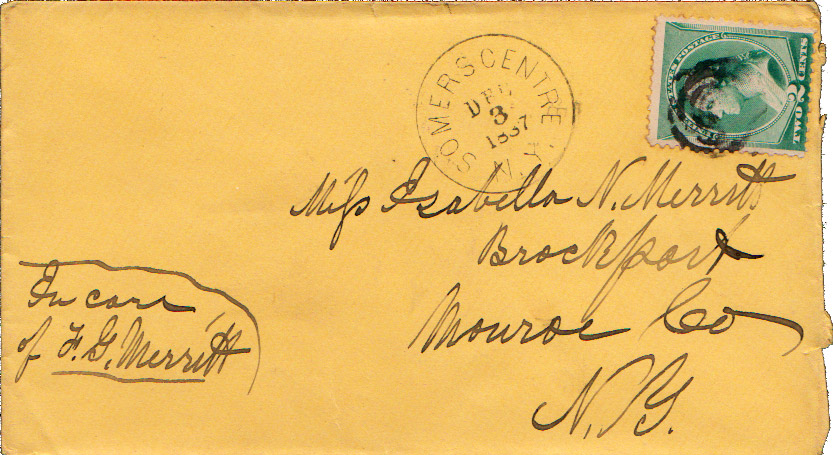 SOMERS CENTRE
DEC
3
1887
N.Y.
TWO 2 CENTS
Miss Isabella N. Merritt
Brockport
Monroe Co
N.Y.
In care
of F. G. Merritt